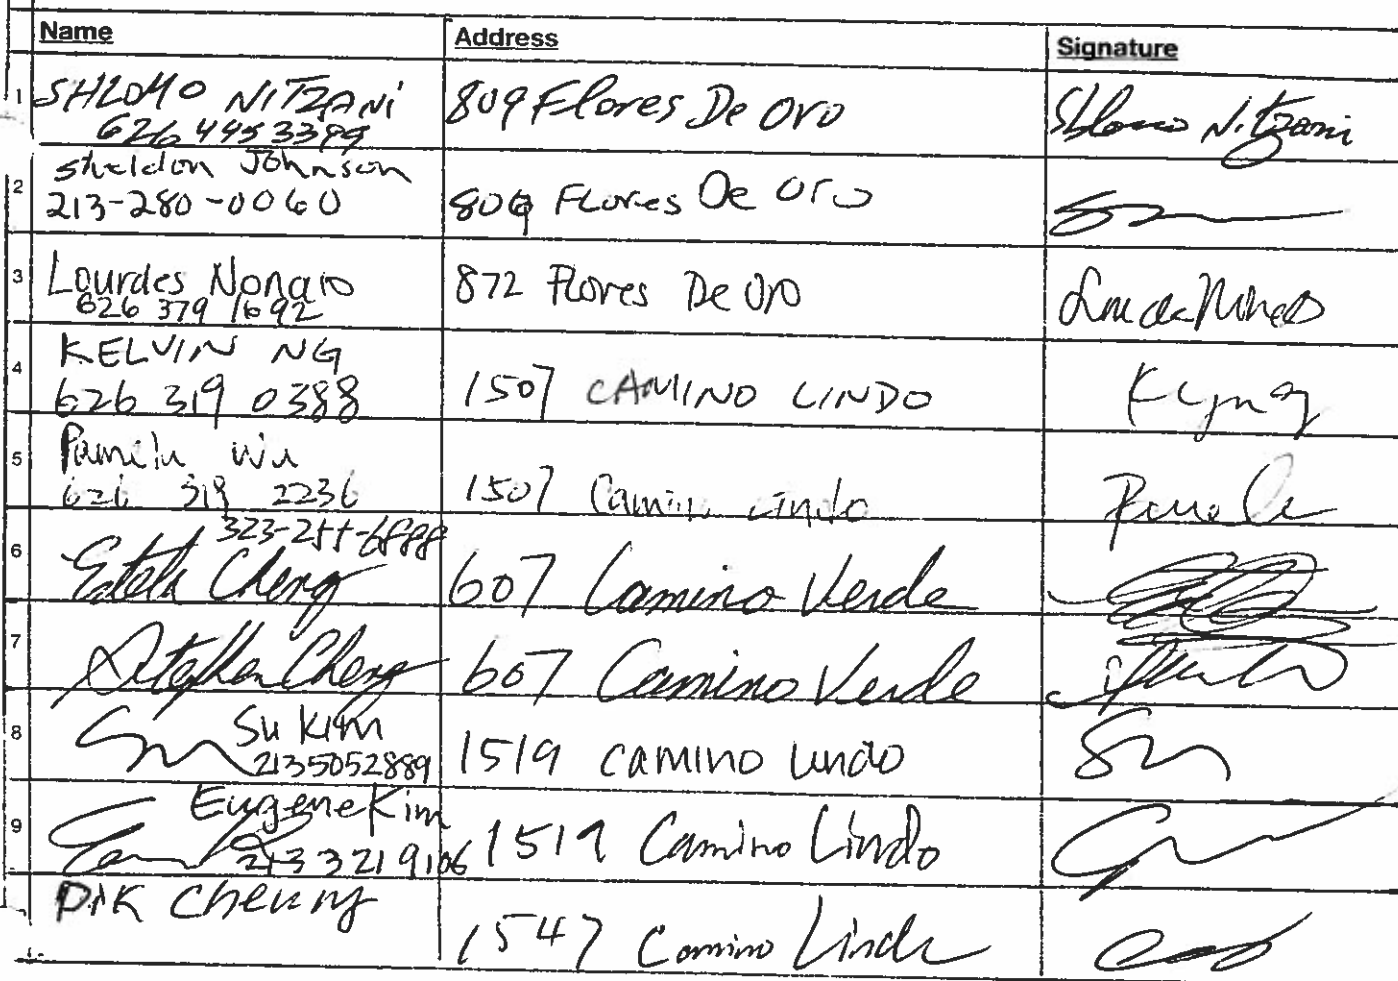 Name Address Signature
1 SHLOMO NITZANI 809 Flores De Oro Shlomo Nitzani
626 445 3399
2 Sheldon Johnson
213-280-0060 809 Flores De Oro
3 Lourdes Nonato 872 Flores De Oro
626 379 1692
4 KELVIN NG
626 319 0388 1507 CAMINO LINDO
5 Pamela Wu
626 319 2236 1507 Camino Lindo
323-255-6888
6 Estela Cheng 607 Camino Verde
7 Stephen Cheng 607 Camino Verde
8 Su Kim
2135052889 1519 Camino Lindo
9 Eugene Kim
213 321 9106 1519 Camino Lindo
Pik Cheung
1547 Camino Linda